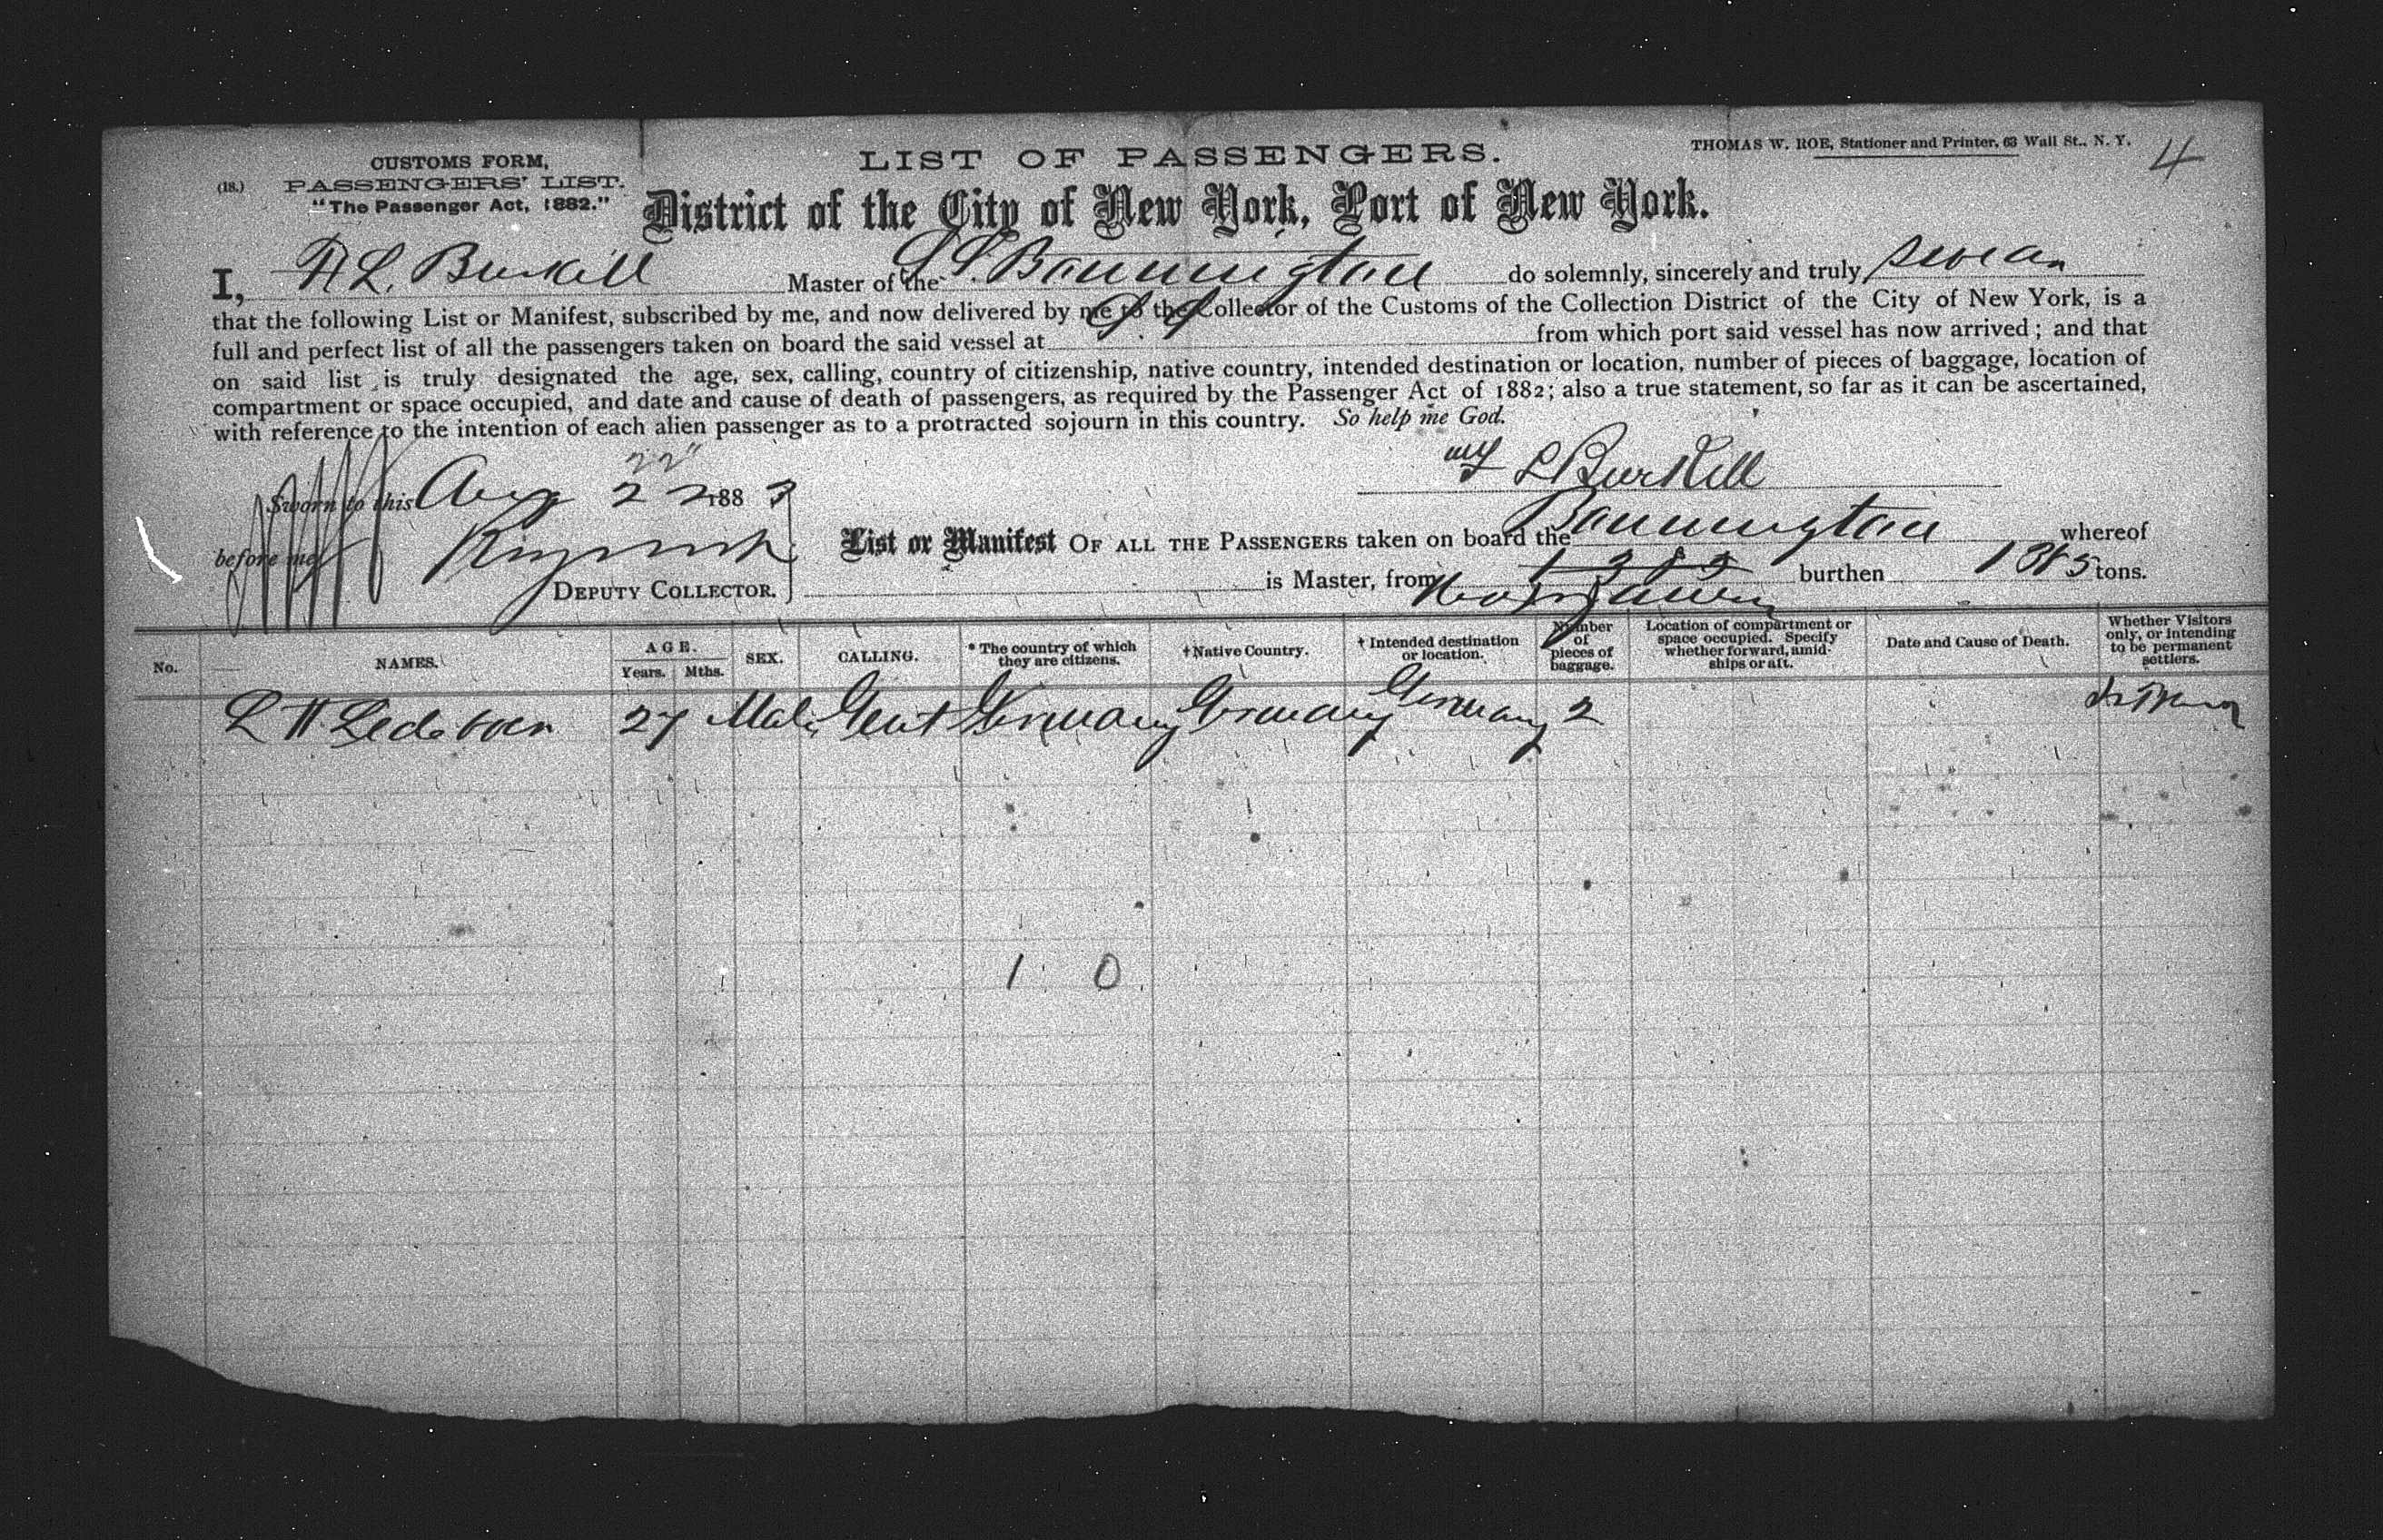 THOMAS W. ROE, Stationer and Printer, 63 Wall St., N. Y.
4
CUSTOMS FORM,
(18.) PASSENGERS' LIST.
"The Passenger Act, 1882."
LIST OF PASSENGERS.
District of the City of New York, Port of New York.
I, Burkill Master of the S.S. do solemnly, sincerely and truly swear
that the following List or Manifest, subscribed by me, and now delivered by me to the Collector of the Customs of the Collection District of the City of New York, is a
full and perfect list of all the passengers taken on board the said vessel at from which port said vessel has now arrived; and that
on said list is truly designated the age, sex, calling, country of citizenship, native country, intended destination or location, number of pieces of baggage, location of
compartment or space occupied, and date and cause of death of passengers, as required by the Passenger Act of 1882; also a true statement, so far as it can be ascertained,
with reference to the intention of each alien passenger as to a protracted sojourn in this country. So help me God.
L Burkill
22"
Sworn to this Aug 22 1883
before me
DEPUTY COLLECTOR.
List or Manifest OF ALL THE PASSENGERS taken on board the whereof
is Master, from burthen 1385 tons.
No. NAMES. AGE. Years. Mths. SEX. CALLING. * The country of which they are citizens. † Native Country. † Intended destination or location. Number of pieces of baggage. Location of compartment or space occupied. Specify whether forward, amid-ships or aft. Date and Cause of Death. Whether Visitors only, or intending to be permanent settlers.
L H 27 Male Gent Germany Germany Germany 2
1 0